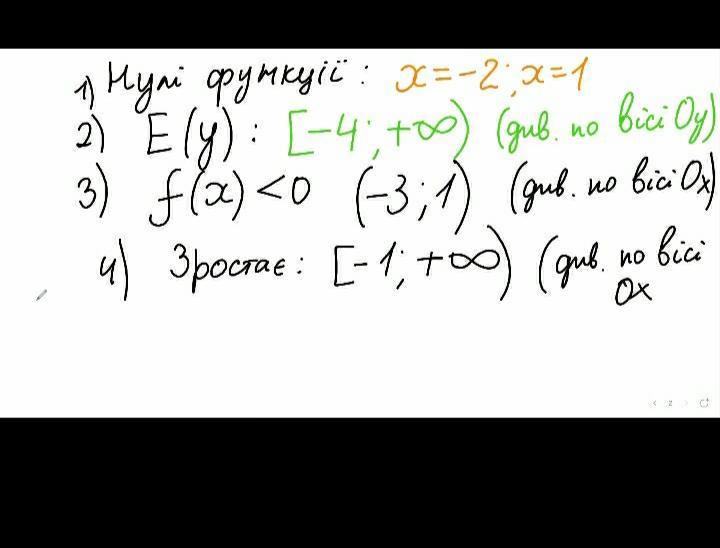 1) Нулі функції: x=-2; x=1
2) E(y): [-4; +∞) (див. по вісі Oy)
3) f(x)<0 (-3; 1) (див. по вісі Ox)
4) Зростає: [-1; +∞) (див. по вісі
Ox
2